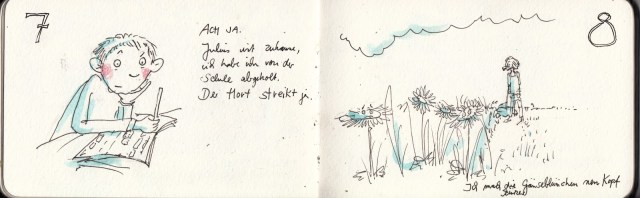 7
ACH JA.
Julius ist zuhause,
ich habe ihn von der
Schule abgeholt.
Der Hort streikt ja.
8
Ich male die Gänseblümchen vom Kopf